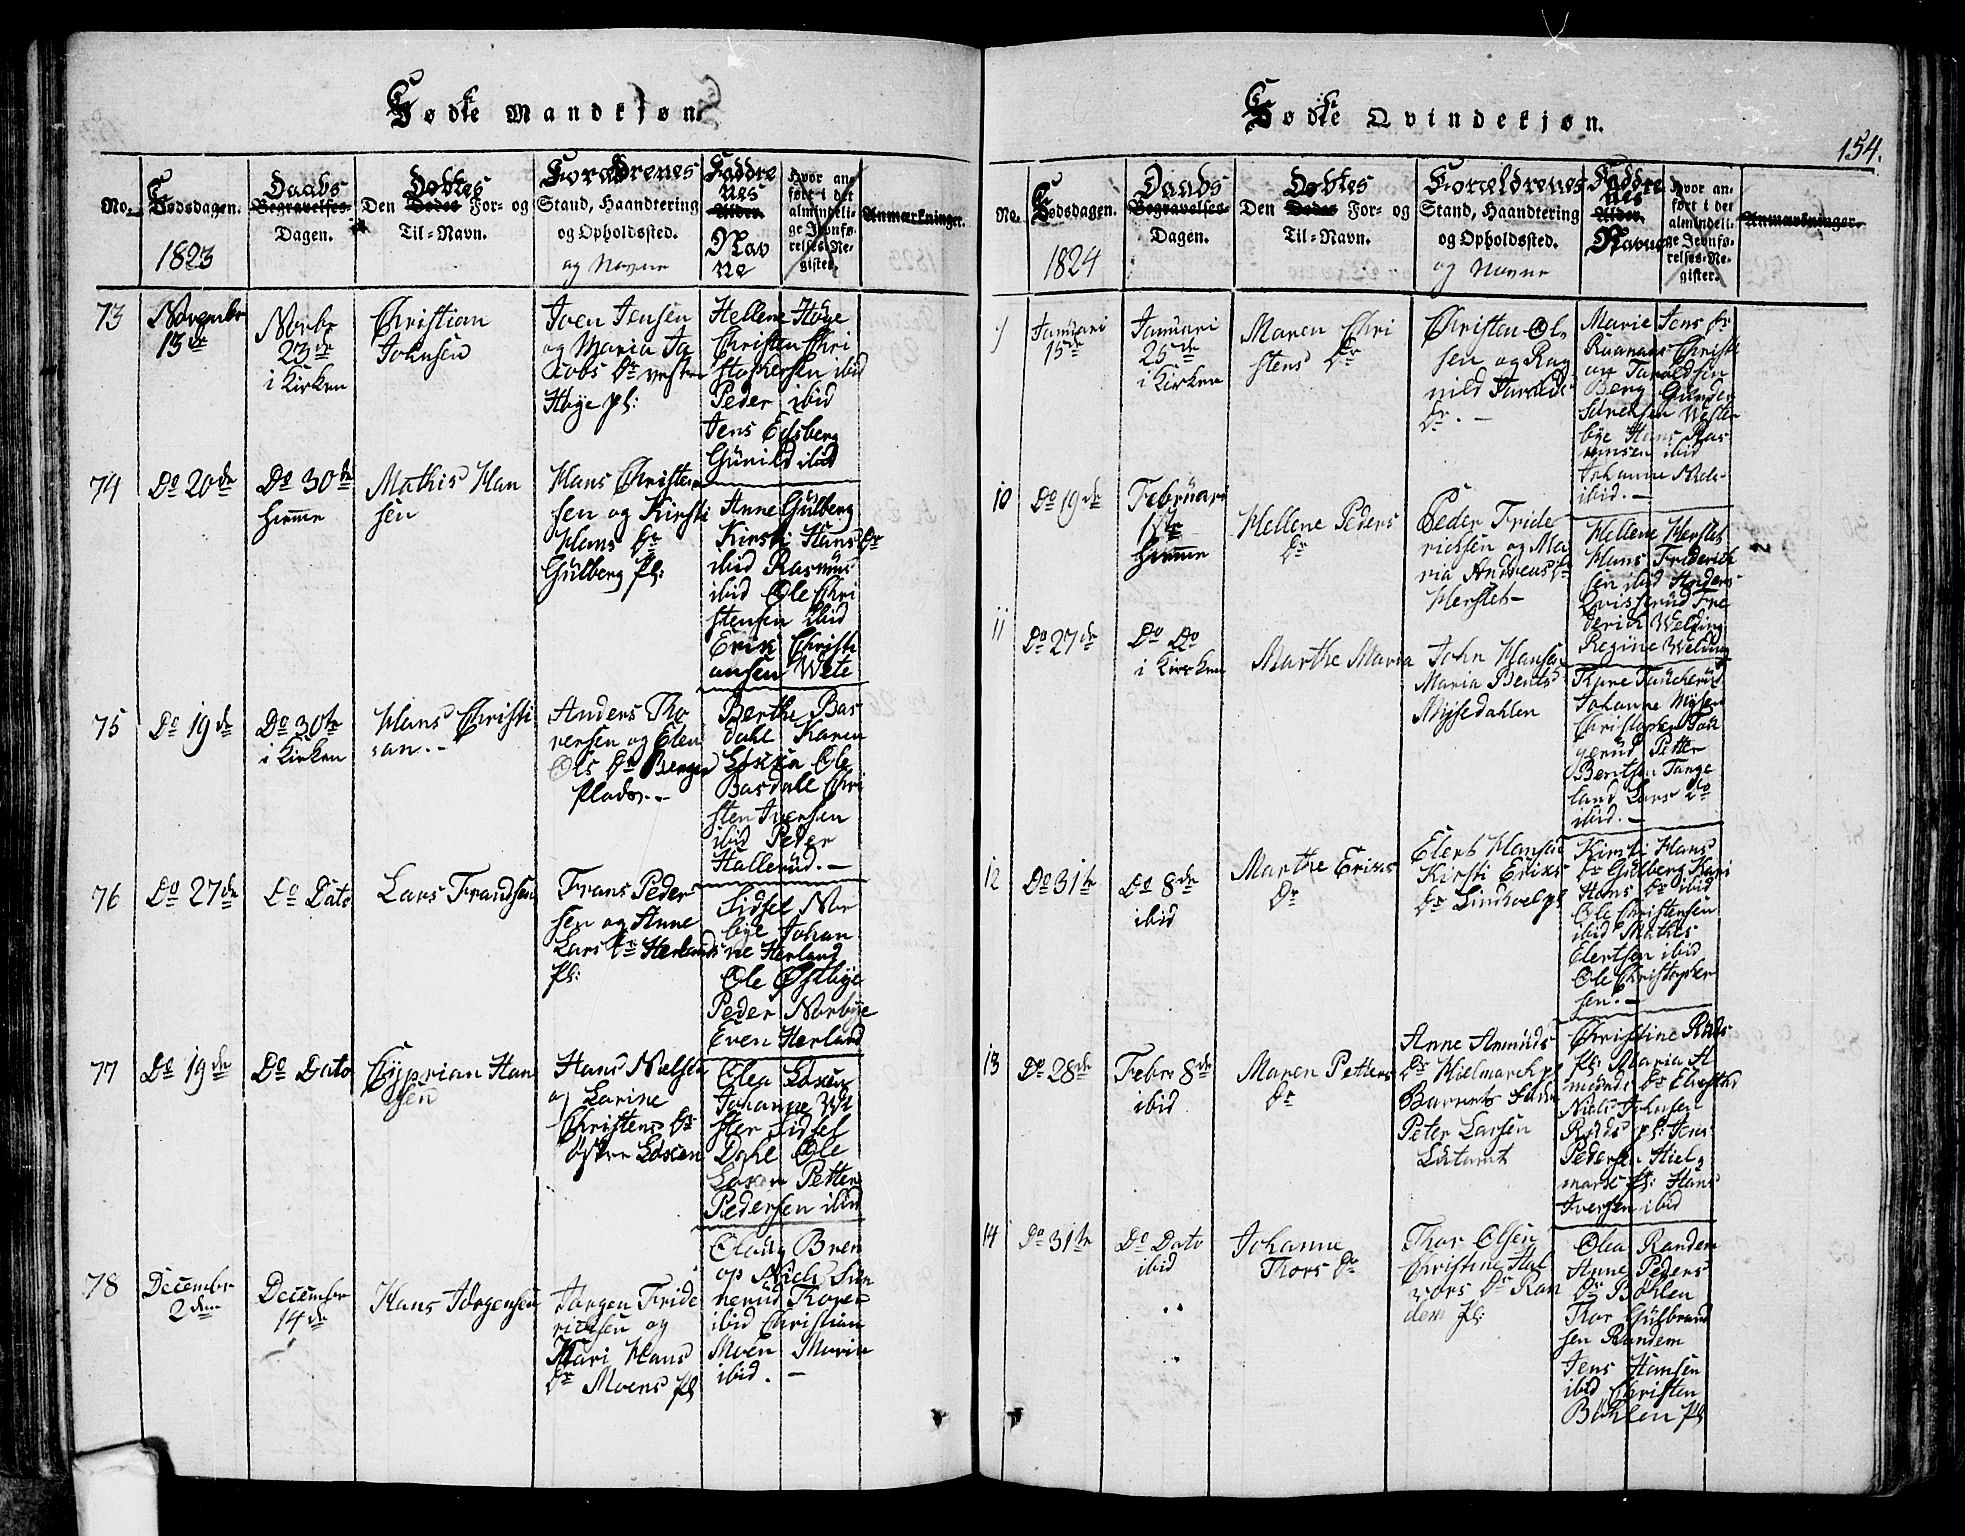 Fødte Mandkjøn
No.
Fødsdagen.
1823
Daabs
Begravelses-
Dagen.
Døbtes
Den Dødes For- og
Til-Navn.
Forældrenes
Stand, Haandtering
og Opholdssted.
og Navne
Faddre
nes
Alder.
Nav
ne
Hvor an-
ført i det
almindeli-
ge Jevnfø-
relses-Re-
gister.
Anmærkninger.
73
Novembr
13de
Novbr
23de
i Kirken
Christian
Johnsen
Iven Jensen
og Maria Ja
cobs Dr vestre
Høye pl:
Hellene Høye
Christen Chri
stophersen ibid
Peder ibid
Jens Edsberg
Gunild ibid
74
Do 20de
Do 30te
hiemme
Mathis Han
sen
Hans Christen
sen og Kirsti
Hans Dr
Gulberg pl:
Anne Gulberg
Kirsti Hans Dr
ibid Rasmus
ibid Ole Chri
stensen ibid
Erik Christi
ansen Wete
75
Do 19de
Do 30te
i Kirken
Hans Christi
an.-
Anders Tho
rersen og Elen
Ols Dr Berger
plads.-
Berthe Bas
dahl Karen
Løken Ole
Basdall Chri
sten Iversen
ibid Peder
Hallerud.-
76
Do 27de
Do Dato
Lars Frandsen
Frans Peder
sen og Anne
Lars Dr Herlands
pl:
Sidsel Nor
bye Johan
ne Herland
Ole Østbye
Peder Norbye
Even Herland
77
Do 19de
Do Dato
Cyprian Han
sen
Hans Nielsen
og Larine
Christens Dr
østre Løken
Olea Løken
Johanne We
ster Sidsel
Dahl Ole
Løken Petter
Pedersen ibid
78
Decembr
2den
Decembr
14de
Hans Jørgensen
Jørgen Fride
richsen og
Mari Hans
Dr Moens pl
Oloug Bren
op Niels Sun
herud Tore
ibid Christian
Moen Maria
ibid. -
Fødte Qvindekjøn.
154.
No.
Fødsdagen.
1824
Daabs
Begravelses-
Dagen.
Døbtes
Den Dødes For- og
Til-Navn.
Forældrenes
Stand, Haandtering
og Opholdssted.
og Navne
Faddre
nes
Alder.
Navne
Hvor an-
ført i det
almindeli-
ge Jevnfø-
relses-Re-
gister.
Anmærkninger.
9
Januari
15de
Januari
25de
i Kirken
Maren Chri
stens Dr
Christen Ol
sen og Rag
nild Taralds
Dr. -
Marie Jens Dr
Christi
an Taraldsen
Berg Gunder
Sørensen Wester
bye Hans Ras
mussen ibid
Johanne Niels
ibid. -
10
Do 19de
Februari
1ste
hiemme
Hellene Peders
Dr
Peder Fride
richsen og Ma
ria Andreas Dr
Herslet-
Hellene Herslet
Hans Friderich
sen ibid Anders
Qvisserud Fre
derich Welding
Regine Welding
11
Do 27de
Do Do
i Kirken
Marthe Maria
John Hansen
Maria Bents
Mysedahlen
Johanne Mysen
Christopher
gerud Petter
Berntsen Tange
land Lars Do
ibid. -
12
Do 31te
Do 8de
ibid
Marthe Eriks
Dr
Elert Hansen
Kirsti Eriks
Dr Lindhol pl
Kirsti Hans
Dr Gulberg Kari
Hans Dr ibid
Ole Christensen
ibid Mathis
Elertsen ibid
Ole Christopher
sen. -
13
Do 28de
Febr 8de
ibid
Maren Petters
Dr
Anne Amunds
Dr Hielmark pl
Barnets Fader
Peter Larsen
Christine Ruds
pl: Maria A
munds Dr
Niels Johnsen
Ruds pl: Jens
Pedersen Hiel
mark pl: Hans
Iversen ibid
14
Do 31te
Do Dato
ibid
Johanne
Thors Dr
Thor Olsen
Christine Hal
vors Dr Ran
dem pl:
Olea Randem
Anne Peders
Dr Bøhlen
Thor Gulbrand
sen Randem
Jens Hansen
ibid Christen
Bøhlen pl